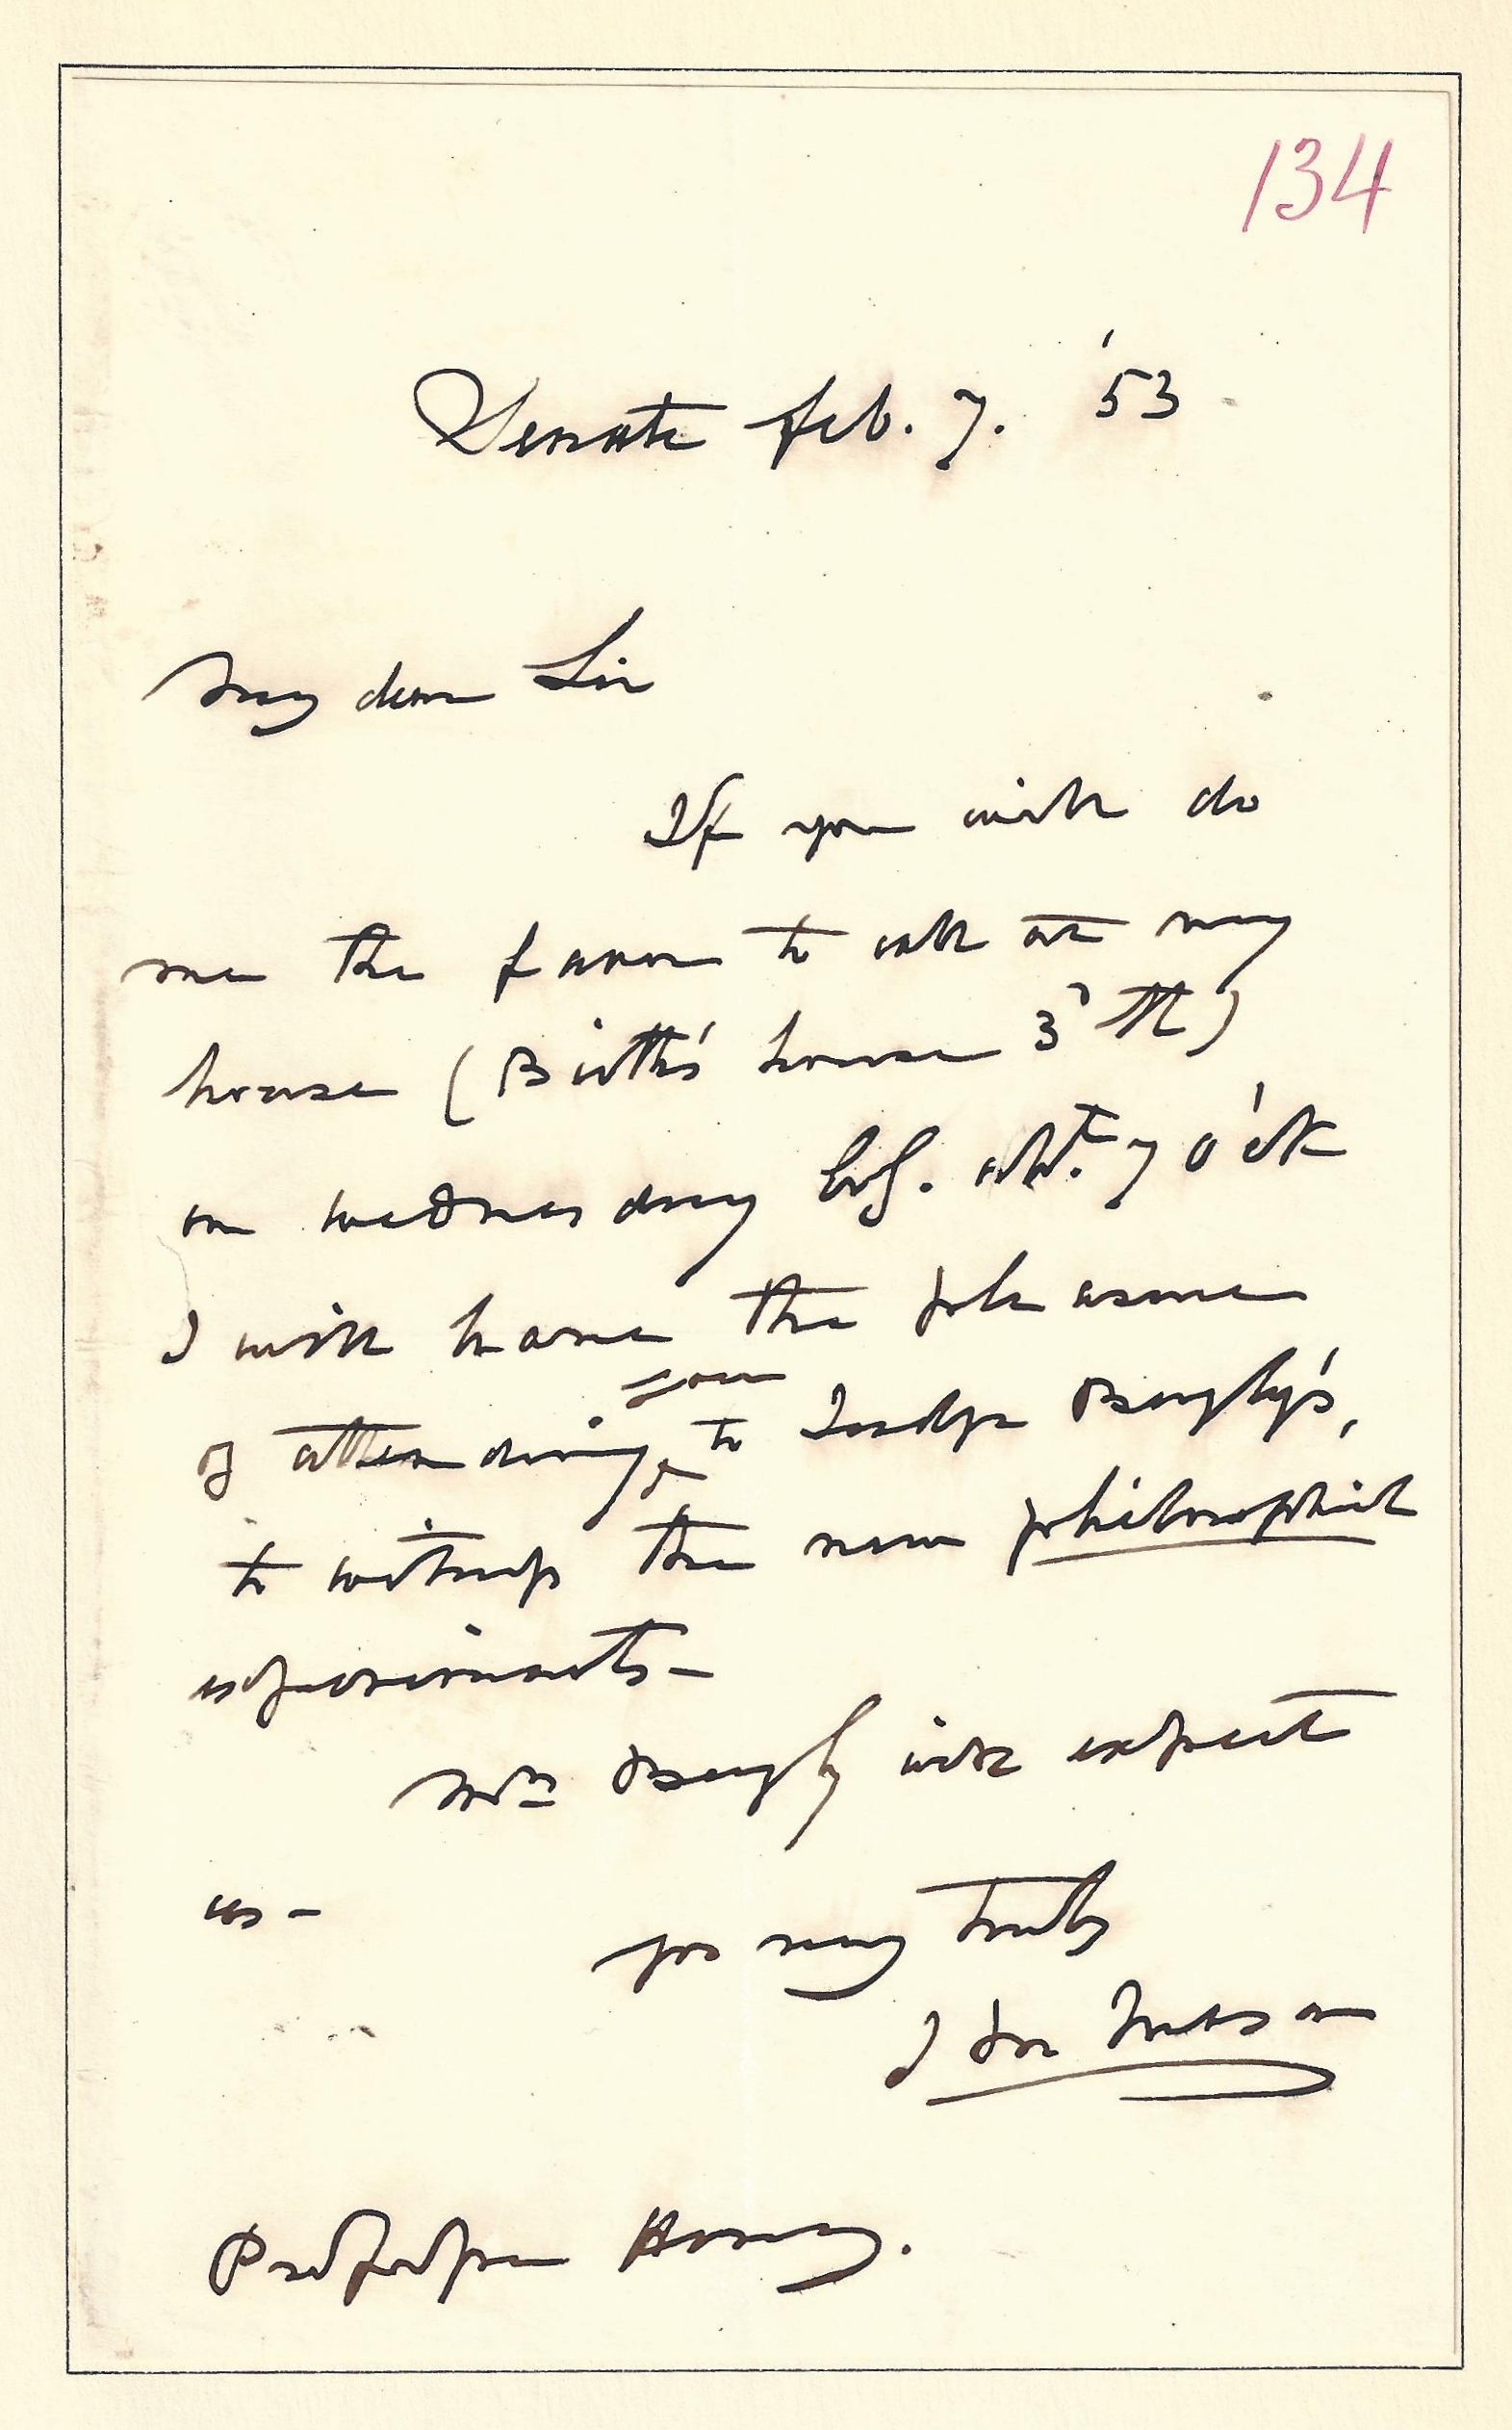 134
Senate Feb. 7. '53
My dear Sir
If you will do
me the favor to call at my
house ( house 3d st)
on wednesday abt. 7 o'ck
I will have the pleasure
you
of attending to Judge Bayly's,
to witness the new philosophical
experiments—
Mrs Bayly will expect
us—
yrs very truly
Professor Henry.